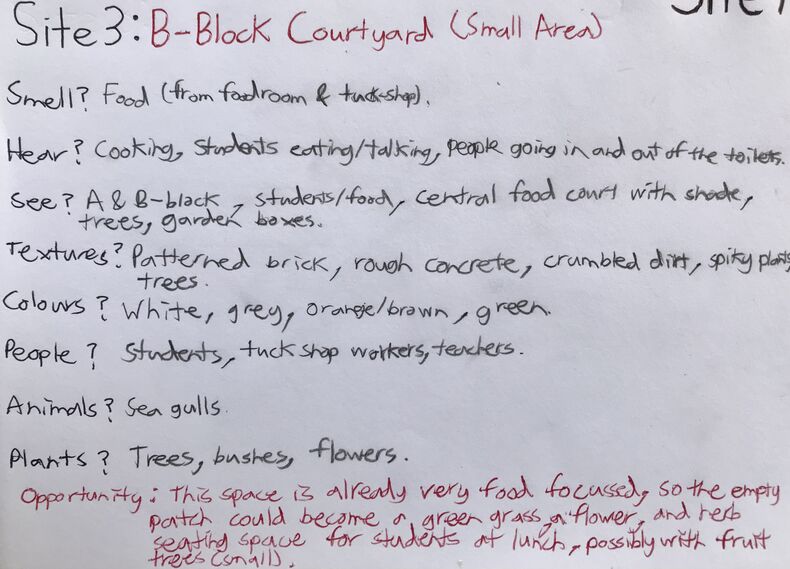 Site 3: B-Block Courtyard (Small Area)
Smell? Food (from foodroom & tuck-shop).
Hear? Cooking, Students eating/talking, people going in and out of the toilets.
See? A & B-block, students/food, central food court with shade,
trees, garden boxes.
Textures? Patterned brick, rough concrete, crumbled dirt, spiky plants
trees.
Colours? White, grey, orange/brown, green.
People? Students, tuck shop workers, teachers.
Animals? Sea gulls.
Plants? Trees, bushes, flowers.
Opportunity: This space is already very food focussed, so the empty
patch could become a green grass, a flower, and herb
seating space for students at lunch, possibly with fruit
trees (small).